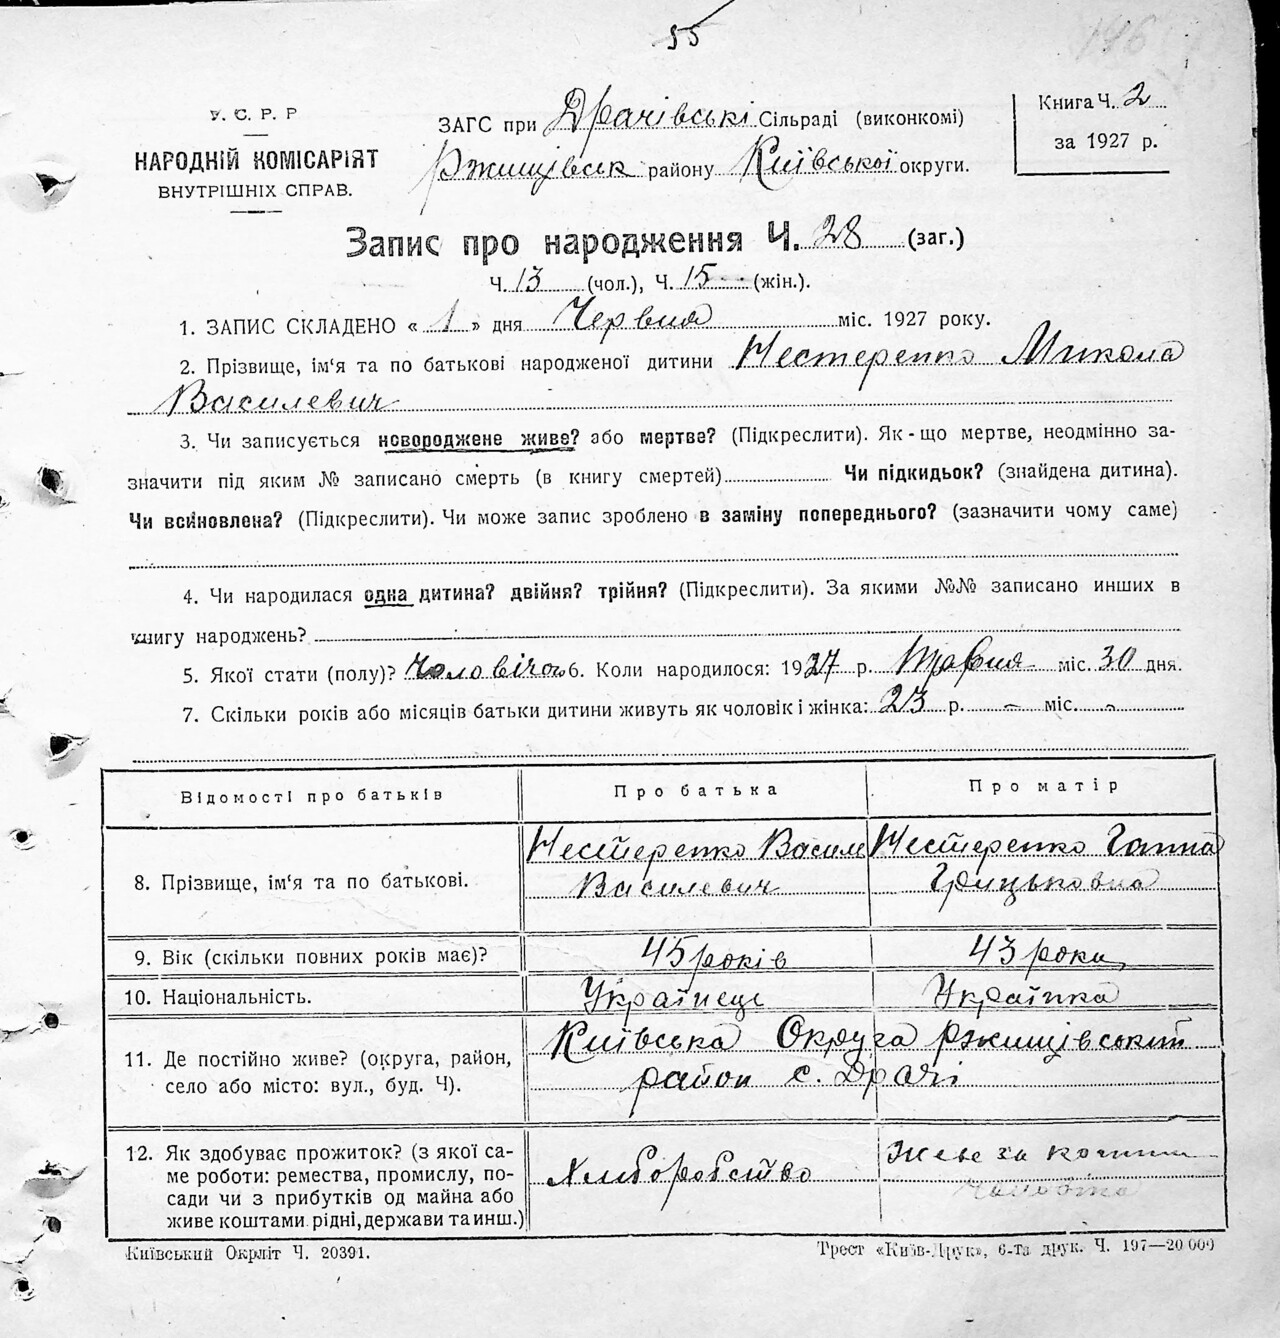 55
146
У. С. Р. Р
НАРОДНІЙ КОМІСАРІЯТ
ВНУТРІШНІХ СПРАВ.
ЗАГС при Драчівські Сільраді (виконкомі)
Ржищівськ району Київської округи.
Книга Ч. 2
за 1927 р.
Запис про народження Ч. 28 (заг.)
Ч. 13 (чол.), Ч. 15 (жін.).
1. ЗАПИС СКЛАДЕНО « 1 » дня Червня міс. 1927 року.
2. Прізвище, ім'я та по батькові народженої дитини Нестеренко Микола
Василевич
3. Чи записується новороджене живе? або мертве? (Підкреслити). Як-що мертве, неодмінно за-
значити під яким № записано смерть (в книгу смертей) Чи підкидьок? (знайдена дитина).
Чи всиновлена? (Підкреслити). Чи може запис зроблено в заміну попереднього? (зазначити чому саме)
4. Чи народилася одна дитина? двійня? трійня? (Підкреслити). За якими №№ записано инших в
книгу народжень?
5. Якої стати (полу)? Чоловічої 6. Коли народилося: 1927 р. Травня міс. 30 дня.
7. Скільки років або місяців батьки дитини живуть як чоловік і жінка: 23 р. – міс. –
Відомості про батьків Про батька Про матір
8. Прізвище, ім'я та по батькові. Нестеренко Василь Василевич Нестеренко Ганна Грицьковна
9. Вік (скільки повних років має)? 45 років 43 роки
10. Національність. Українець Українка
11. Де постійно живе? (округа, район, Київська Округа Ржищівський
село або місто: вул., буд. Ч). район с. Драчі
12. Як здобуває прожиток? (з якої са-
ме роботи: ремества, промислу, по-
сади чи з прибутків од майна або
живе коштами рідні, держави та инш.)
Хліборобство
Живе за кошти
чоловіка
Київський Окрліт Ч. 20391.
Трест «Київ-Друк», 6-та друк. Ч. 197—20 000